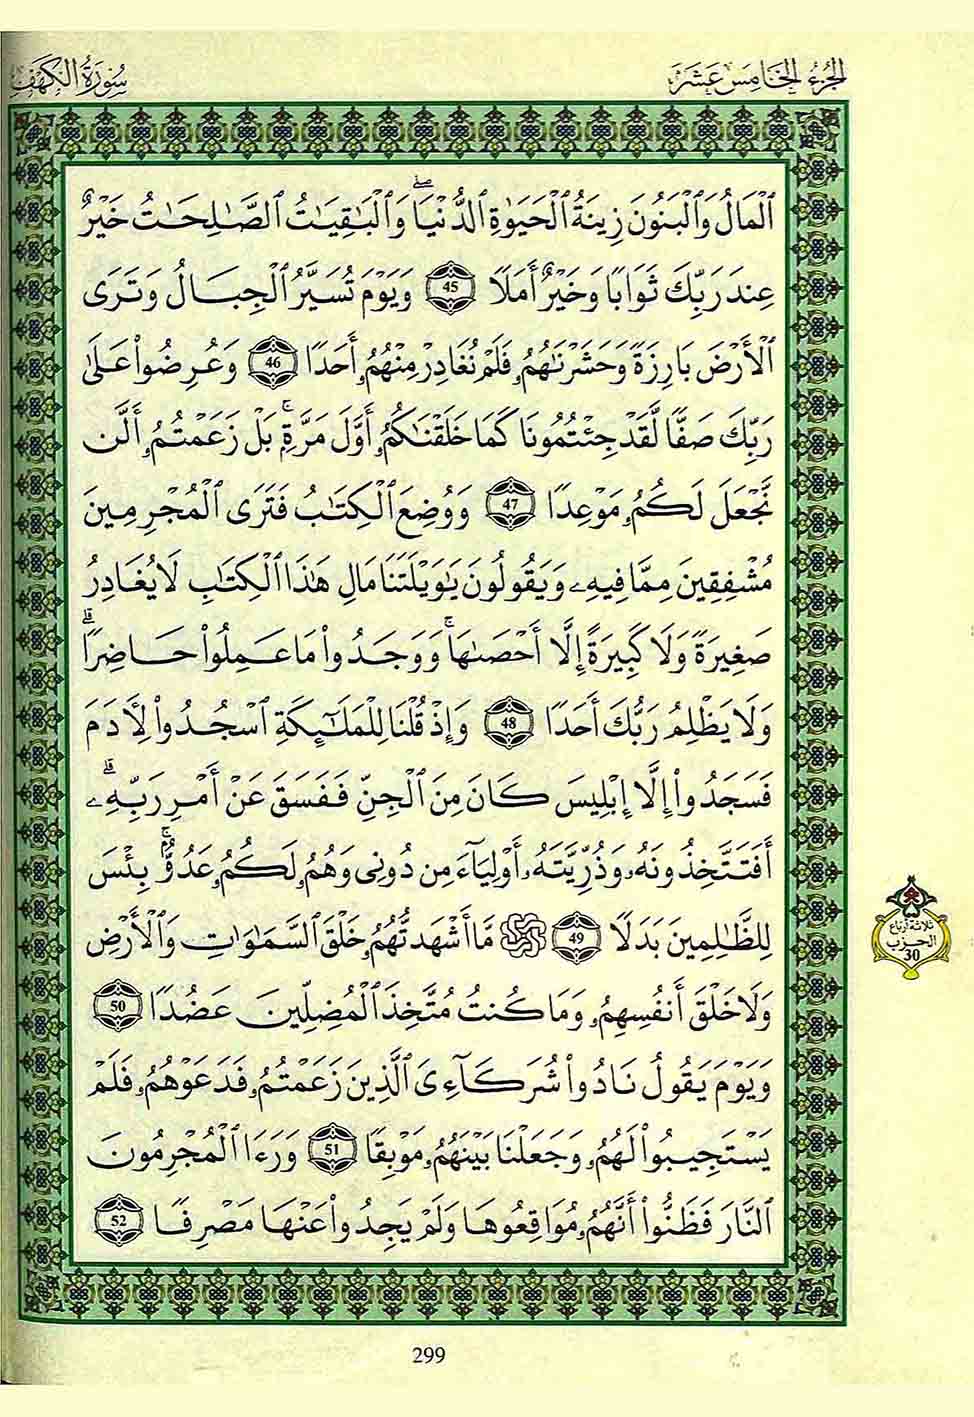 الجُزْءُ الخَامِسَ عَشَرَ
سُورَةُ الكَهْفِ
ٱلْمَالُ وَٱلْبَنُونَ زِينَةُ ٱلْحَيَوٰةِ ٱلدُّنْيَاۖ وَٱلْبَٰقِيَٰتُ ٱلصَّٰلِحَٰتُ خَيْرٌ
عِندَ رَبِّكَ ثَوَابًا وَخَيْرٌ أَمَلًا 45 وَيَوْمَ تُسَيَّرُ ٱلْجِبَالُ وَتَرَى
ٱلْأَرْضَ بَارِزَةً وَحَشَرْنَٰهُمُۥ فَلَمْ نُغَادِرْ مِنْهُمُۥ أَحَدًا 46 وَعُرِضُوا۟ عَلَىٰ
رَبِّكَ صَفًّا لَّقَدْ جِئْتُمُونَا كَمَا خَلَقْنَٰكُمُۥ أَوَّلَ مَرَّةٍۭۚ بَلْ زَعَمْتُمُۥ أَلَّن
نَّجْعَلَ لَكُمُۥ مَوْعِدًا 47 وَوُضِعَ ٱلْكِتَٰبُ فَتَرَى ٱلْمُجْرِمِينَ
مُشْفِقِينَ مِمَّا فِيهِۦ وَيَقُولُونَ يَٰوَيْلَتَنَا مَالِ هَٰذَا ٱلْكِتَٰبِ لَا يُغَادِرُ
صَغِيرَةً وَلَا كَبِيرَةً إِلَّا أَحْصَىٰهَاۚ وَوَجَدُوا۟ مَا عَمِلُوا۟ حَاضِرًاۗ
وَلَا يَظْلِمُ رَبُّكَ أَحَدًا 48 وَإِذْ قُلْنَا لِلْمَلَٰٓئِكَةِ ٱسْجُدُوا۟ لِأٓدَمَ
فَسَجَدُوا۟ إِلَّا إِبْلِيسَ كَانَ مِنَ ٱلْجِنِّ فَفَسَقَ عَنْ أَمْرِ رَبِّهِۦۗ
أَفَتَتَّخِذُونَهُۥ وَذُرِّيَّتَهُۥ أَوْلِيَآءَ مِن دُونِى وَهُمُۥ لَكُمُۥ عَدُوٌّۢۚ بِئْسَ
لِلظَّٰلِمِينَ بَدَلًا 49 مَّا أَشْهَدتُّهُمُۥ خَلْقَ ٱلسَّمَٰوَٰتِ وَٱلْأَرْضِ
وَلَا خَلْقَ أَنفُسِهِمُۥ وَمَا كُنتُ مُتَّخِذَ ٱلْمُضِلِّينَ عَضُدًا 50
وَيَوْمَ يَقُولُ نَادُوا۟ شُرَكَآءِىَ ٱلَّذِينَ زَعَمْتُمُۥ فَدَعَوْهُمُۥ فَلَمْ
يَسْتَجِيبُوا۟ لَهُمُۥ وَجَعَلْنَا بَيْنَهُمُۥ مَوْبِقًا 51 وَرَءَا ٱلْمُجْرِمُونَ
ٱلنَّارَ فَظَنُّوا۟ أَنَّهُمُۥ مُوَاقِعُوهَا وَلَمْ يَجِدُوا۟ عَنْهَا مَصْرِفًا 52
ثلاثة أرباع
الحزب
30
299